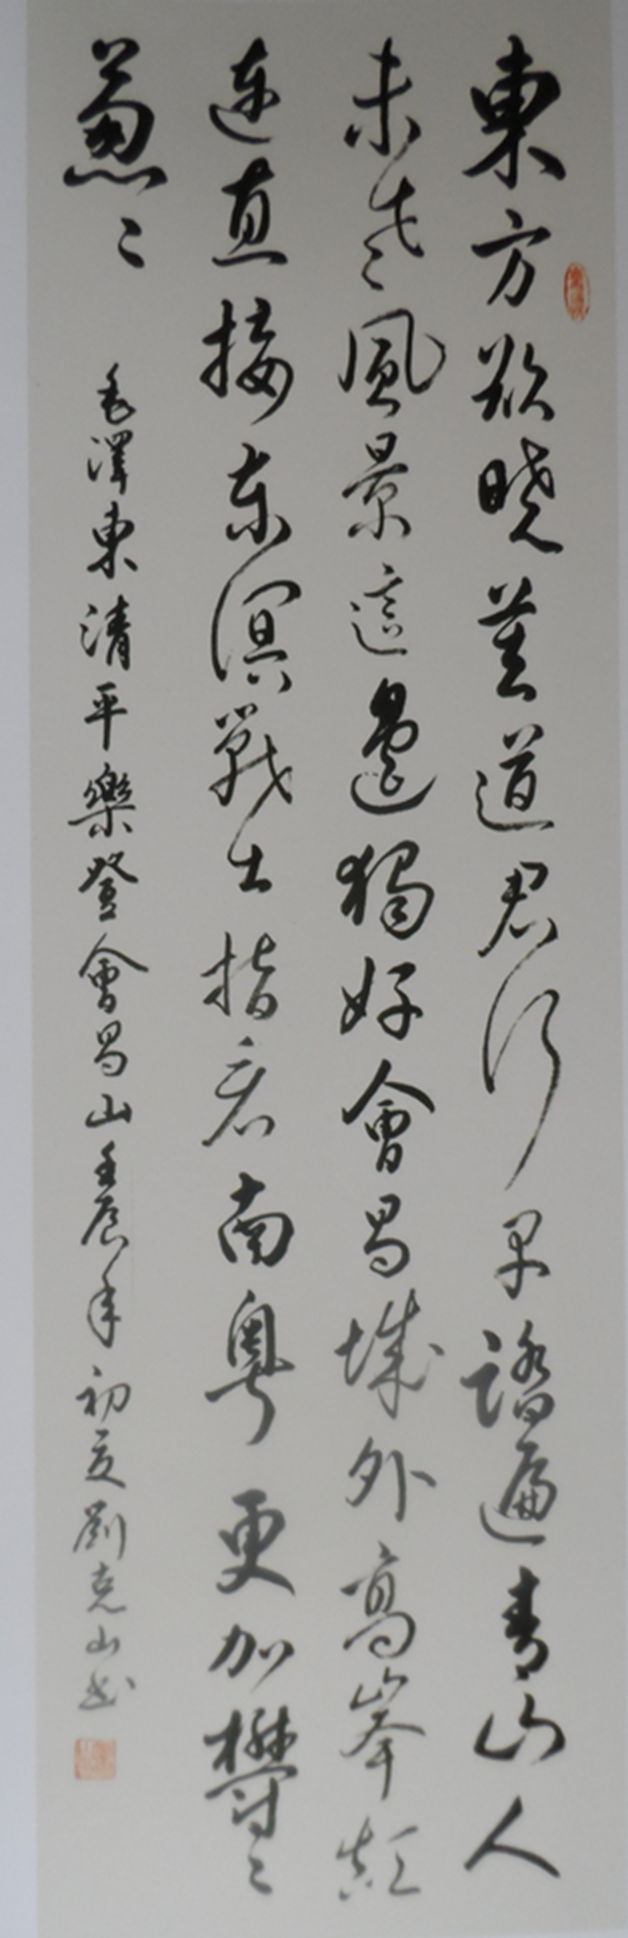 東方欲曉莫道君行早踏遍青山人
未老〻風景這邊獨好會昌城外高峯顛
連直接東溟戰士指看南粵更加鬱〻
蔥〻
毛澤東清平樂登會昌山壬辰年初夏劉克山書